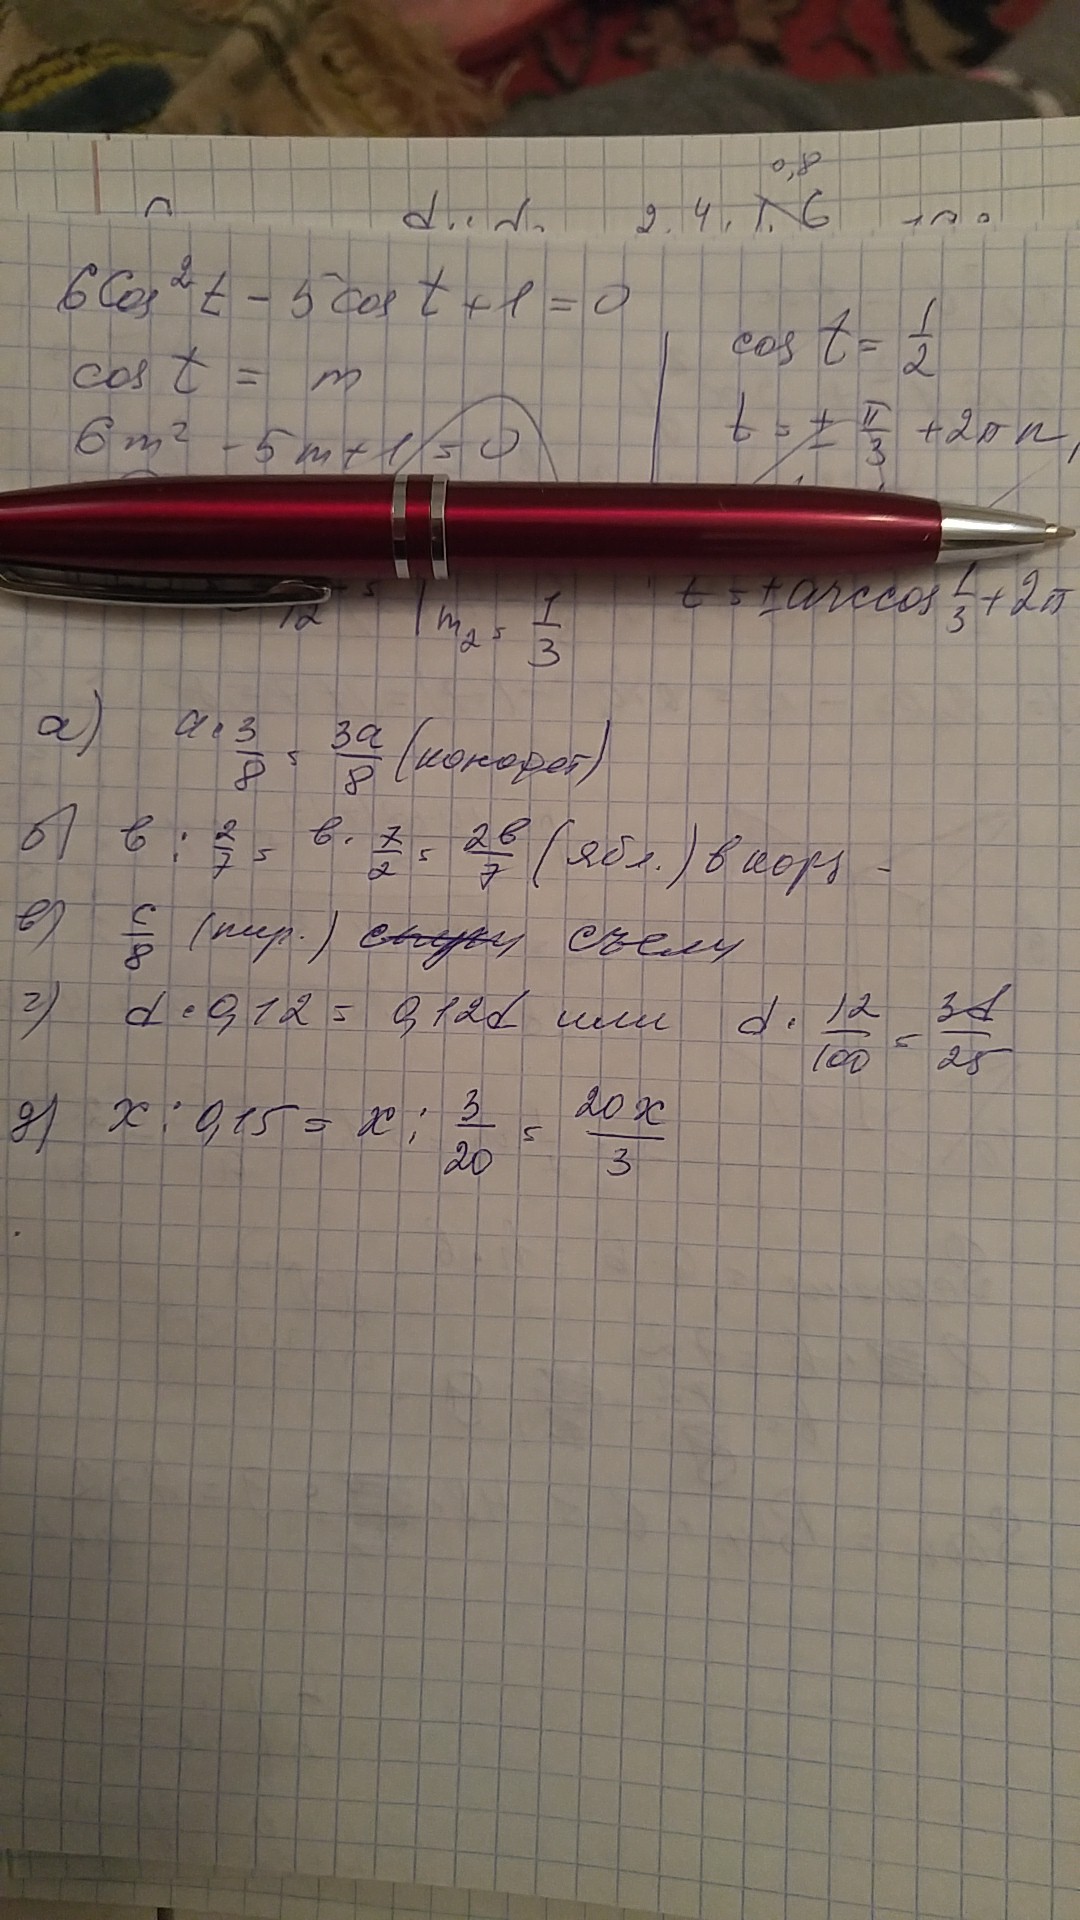 0,8
6cos²t - 5cos t + 1 = 0
cos t = m
6m² - 5m + 1 = 0
12 =
m₂ = 1/3
cos t = 1/2
t = ± π/3 + 2πn,
t = ± arccos 1/3 + 2π
а) a · 3/8 = 3a/8 (конфет)
б) в : 2/7 = в · 7/2 = 2в/7 (ябл.) в корз -
в) c/8 (пир.) съели
г) d · 0,12 = 0,12d или d · 12/100 = 3d/25
д) x : 0,15 = x : 3/20 = 20x/3